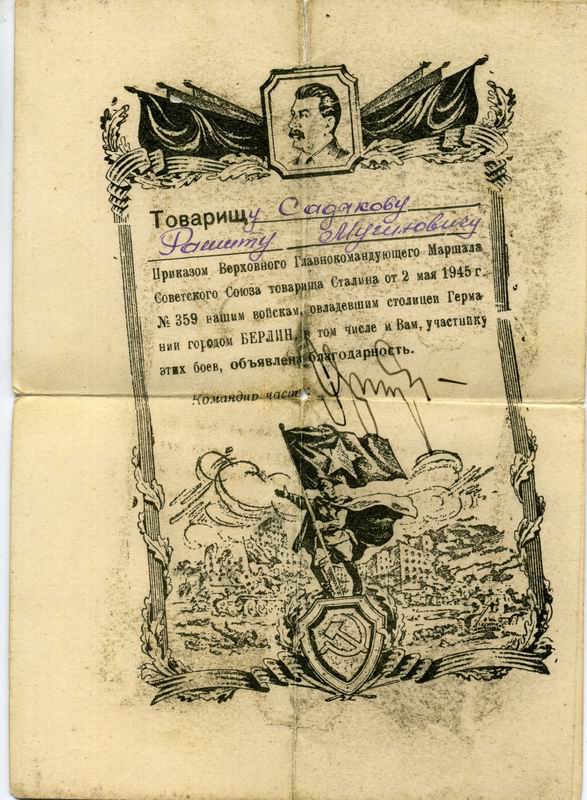 Товарищу Садакову
Рашиту
Приказом Верховного Главнокомандующего Маршала
Советского Союза товарища Сталина от 2 мая 1945 г.
№ 359 нашим войскам, овладевшим столицей Герма-
нии городом БЕРЛИН, в том числе и Вам, участнику
этих боев, объявлена благодарность.
Командир част